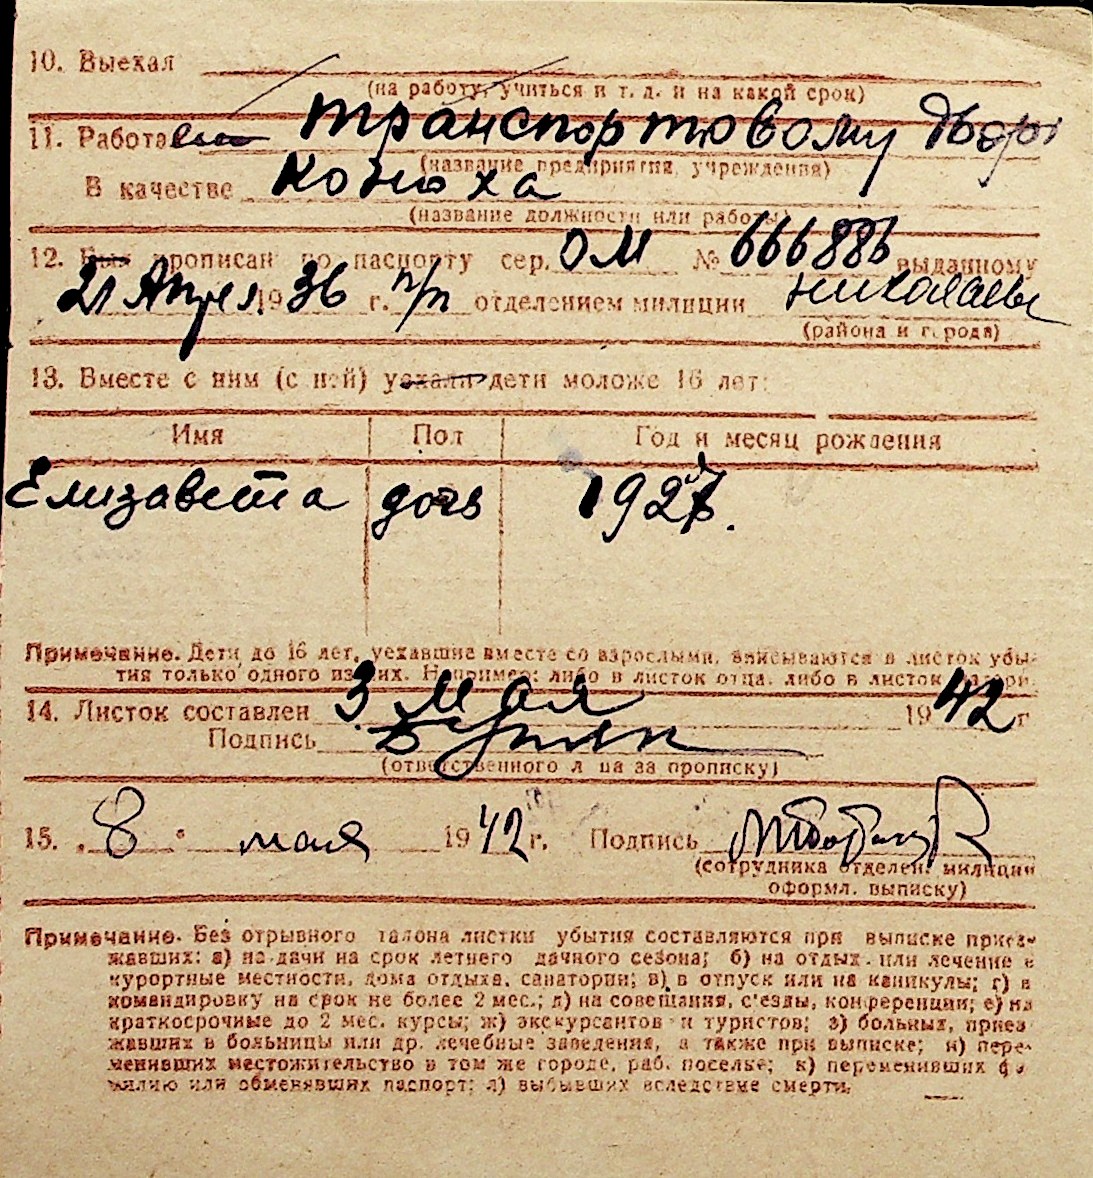 10. Выехал
(на работу, учиться и т. д. и на какой срок)
11. Работает транспортовому двору
(название предприятия, учреждения)
В качестве конюха
(название должности или работы)
12. Был прописан по паспорту сер. ОМ № 666886 выданному
21 Апрел. 1936 г. п/п отделением милиции
(района и города)
13. Вместе с ним (с ней) уехали дети моложе 16 лет:
Имя Пол Год и месяц рождения
Елизавета дочь 1927.
Примечание. Дети до 16 лет, уехавшие вместе со взрослыми, вписываются в листок убы-
тия только одного из них. Например: либо в листок отца, либо в листок матери.
14. Листок составлен 3 мая 1942 г
Подпись
(ответственного лица за прописку)
15. „8" мая 1942 г. Подпись
(сотрудника отделен. милиции
оформл. выписку)
Примечание. Без отрывного талона листки убытия составляются при выписке приез-
жавших: а) на дачи на срок летнего дачного сезона; б) на отдых или лечение в
курортные местности, дома отдыха, санатории; в) в отпуск или на каникулы; г) в
командировку на срок не более 2 мес.; д) на совещания, с'езды, конференции; е) на
краткосрочные до 2 мес. курсы; ж) экскурсантов и туристов; з) больных, приез-
жавших в больницы или др. лечебные заведения, а также при выписке; и) пере-
менивших местожительство в том же городе, раб. поселке; к) переменивших фа-
милию или обменявших паспорт; л) выбывших вследствие смерти.